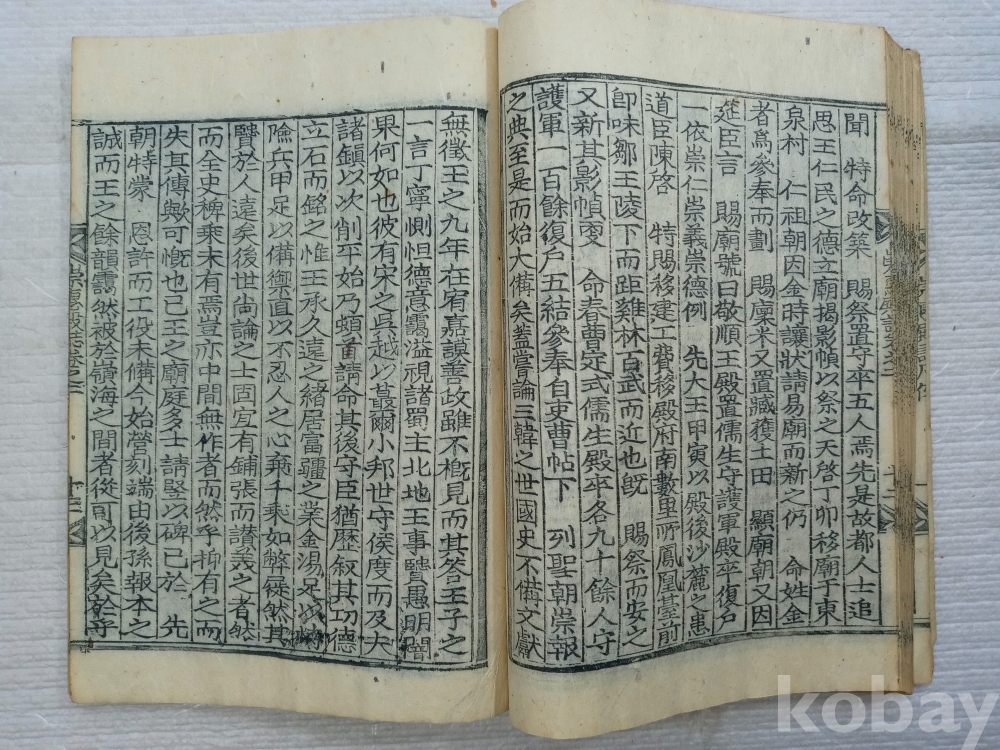 聞 特命改築 賜祭置守卒五人焉先是故都人士追
思王仁民之德立廟揭影幀以祭之天啓丁卯移廟于東
泉村 仁祖朝因金時讓狀請易廟而新之仍 命姓金
者爲參奉而劃 賜廩米又置臧獲土田 顯廟朝又因
筵臣言 賜廟號曰敬順王殿置儒生守護軍殿卒復戶
一依崇仁崇義崇德例 先大王甲寅以殿後沙麓之患
道臣陳啓 特賜移建工費移殿府南數里所鳳凰臺前
卽味鄒王陵下而距雞林百武而近也旣 賜祭而安之
又新其影幀 命春曹定式儒生殿卒各九十餘人守
護軍一百餘復戶五結參奉自吏曹帖下 列聖朝崇報
之典至是而始大備矣蓋嘗論三韓之世國史不備文獻
無徵王之九年在宥嘉謨善政雖不槪見而其答王子之
一言丁寧惻怛德意靄溢視諸蜀主北地王事賢愚明闇
果何如也彼有宋之吳越以蕞爾小邦世守侯度而及大
諸鎭以次削平始乃頓首請命其後守臣猶歷叙其功德
立石而銘之惟王承久遠之緖居富彊之業金湯足以
險兵甲足以備禦直以不忍人之心棄千乘如弊屣然其
賢於人遠矣後世尙論之士固宜有鋪張而讚美之者然
而全史稗乘未有焉豈亦中間無作者而然乎抑有之而
失其傳歟可慨也已王之廟庭多士請竪以碑已於 先
朝特蒙 恩許而工役未備今始營刻端由後孫報本之
誠而王之餘韻靄然被於嶺海之間者從可以見矣於乎